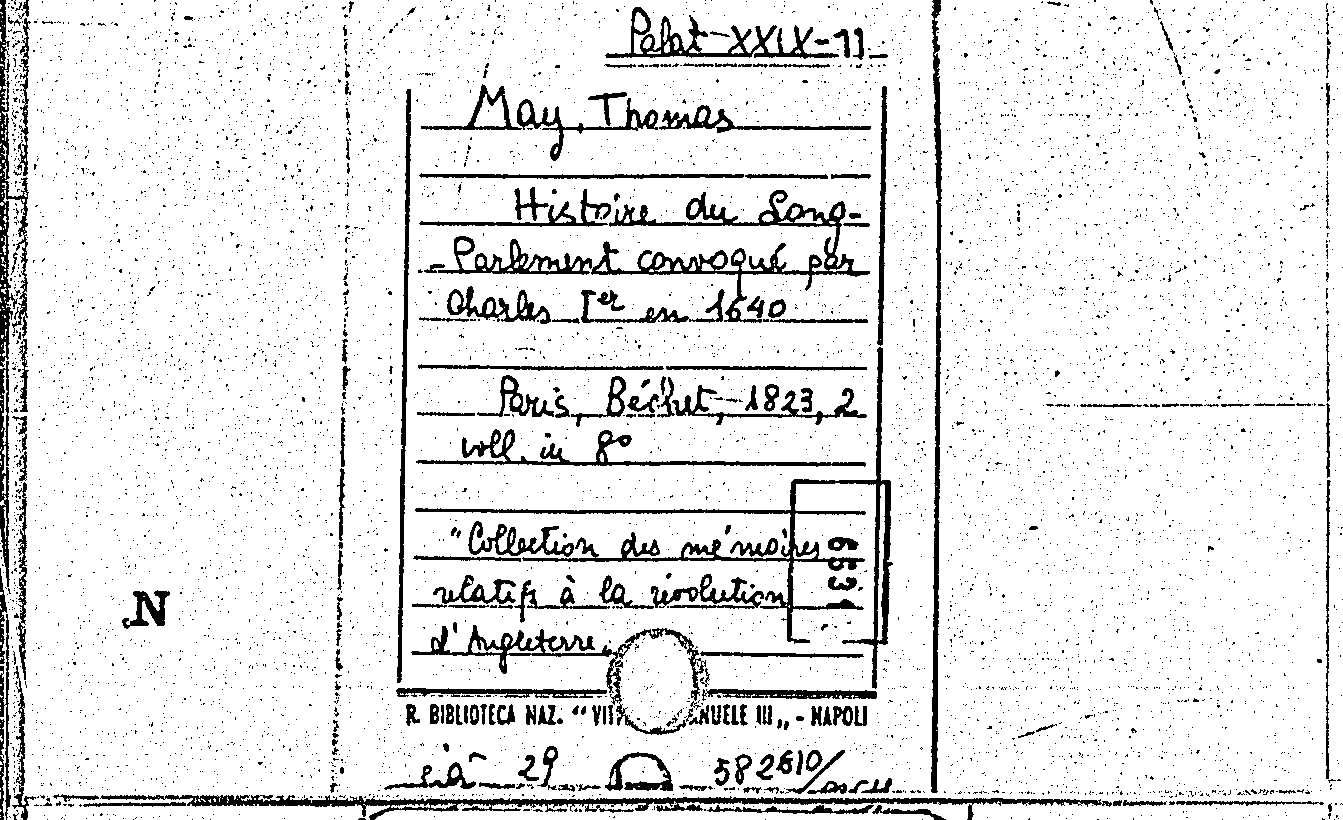 Palat-XXIX-11
May, Thomas
Histoire du Long-
-Parlement convoqué par
Charles Ier en 1640
Paris, Béchet, 1823, 2
voll. in 8°
"Collection des mémoires
relatifs à la révolution
d'Angleterre„
6531
N
R. BIBLIOTECA NAZ. “ NUELE III „ - NAPOLI
già 29 582610/